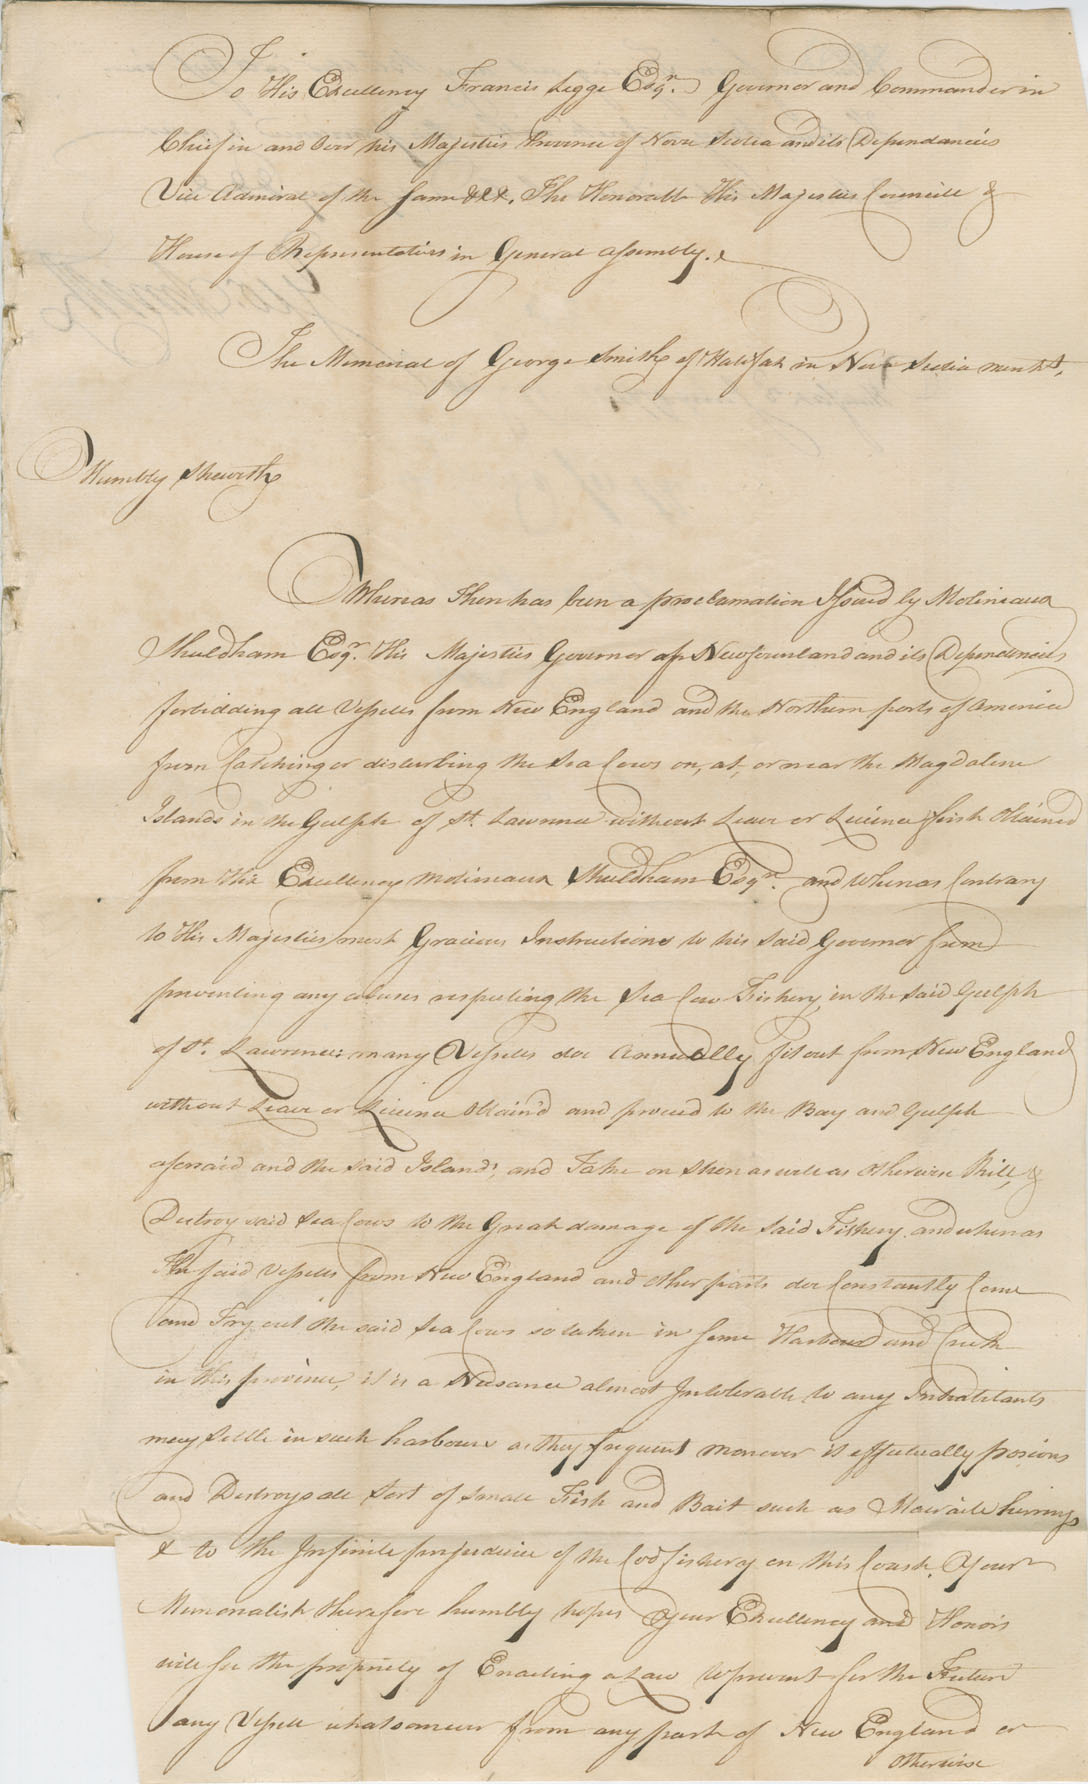 To His Excellency Francis Legge Esqr. Governor and Commander in
Chief in and Over his Majesties Province of Nova Scotia and its Dependancies
Vice Admiral of the same &c &c. The Honorable His Majesties Councill &
House of Representatives in General Assembly.
The Memorial of George Smith of Halifax in Nova Scotia
Humbly Sheweth
Whereas There has been a proclamation Issued by Molineaux
Shuldham Esqr. His Majesties Governor of Newfounland and its Dependencies
forbidding all Vessells from New England and the Northern parts of America
from Catching or disturbing the Sea Cows on, at, or near the Magdalene
Islands in the Gulph of St. Lawrence without Leave or Licence first Obtained
from His Excellency Molineaux Shuldham Esqr. and Whereas Contrary
to His Majesties most Gracious Instructions to his said Governor
preventing any abuses respecting the Sea Cow Fishery in the said Gulph
of St. Lawrence: many Vessells doe Annually fit out from New England
without Leave or Licence Obtain'd and proceed to the Bay and Gulph
aforesaid and the said Islands, and Take on Shore as well as otherwise Kill, &
Destroy said Sea Cows to the Great damage of the said Fishery and whereas
The said Vessells from New England and other parts doe Constantly Come
and Try out the said Sea Cows so taken in some Harbour and Creek
in this province, it is a Nusance almost Intolerable to any Inhabitants
may settle in such harbours as they frequent moreover it effectually posions
and Destroys all Sort of small Fish and Bait such as Macraile herrings
& to the Infinite prejudice of the Cod fishery on this Coast. Your
Memorialist therefore humbly hopes Your Excellency and Honors
will see the propriety of Enacting a Law to prevent for the Future
any Vessell whatsomever from any part of New England or
otherwise